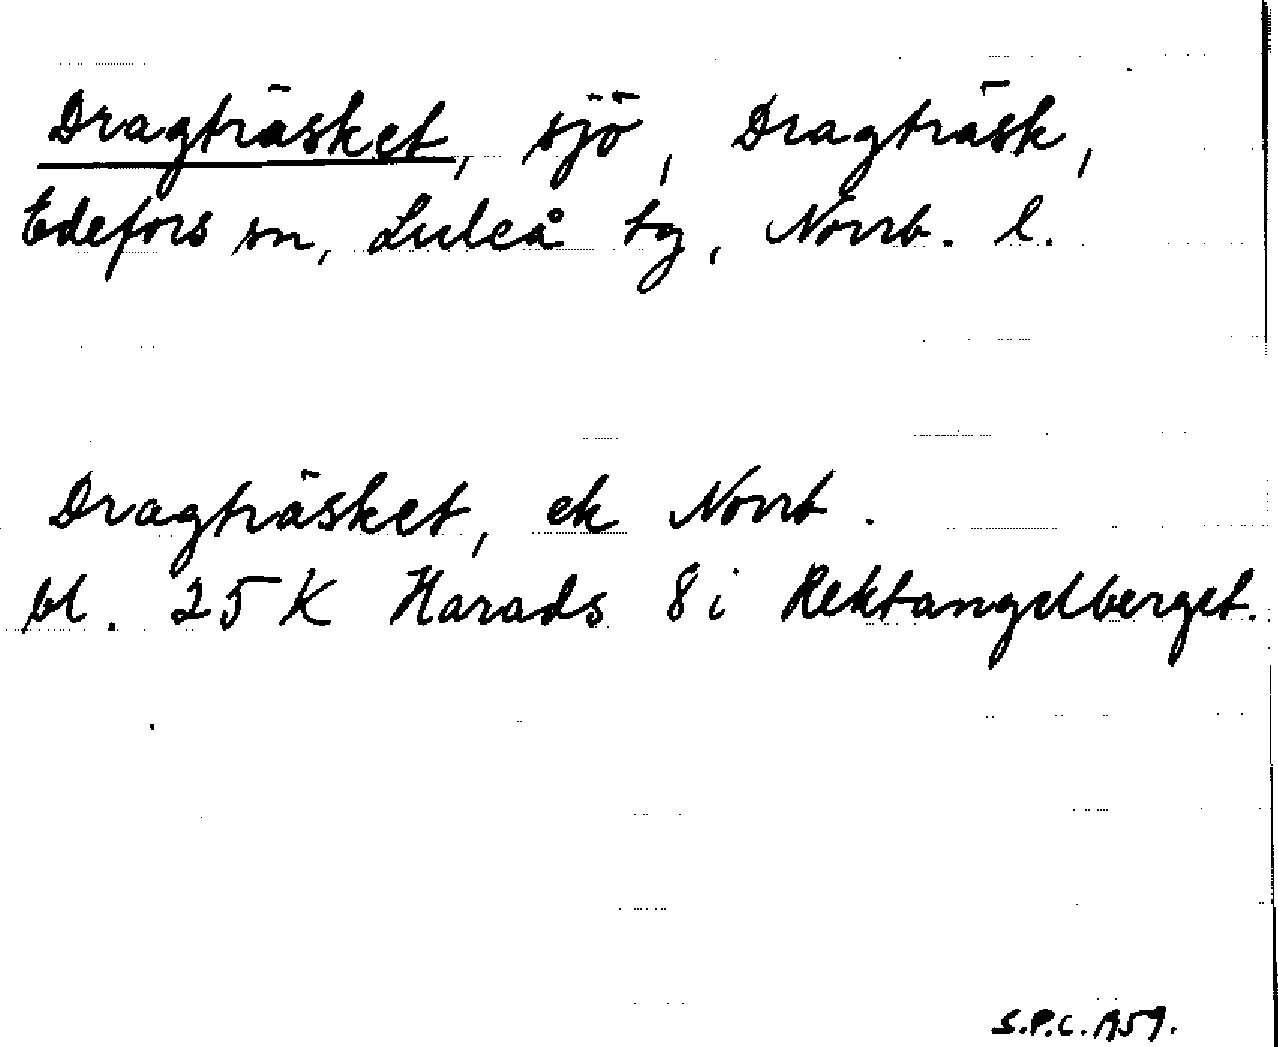 Dragträsket, sjö, Dragträsk,
Edefors sn, Luleå tg, Norrb. l.
Dragträsket, ek Norrb.
bl. 25 K Harads 8 i Rektangelberget.
S.P.C. 1959.